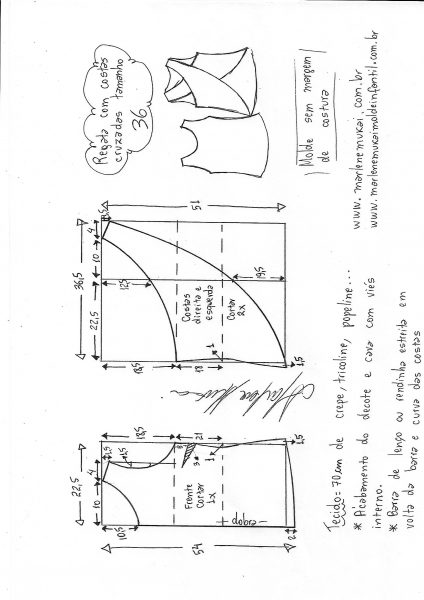 Regata com costas
cruzadas tamanho
36
Molde sem margem
de costura
www.marlenemukai.com.br
www.marlenemukaimoldeinfantil.com.br
51
36,5
4
10
22,5
12,5
19,5
Costas
direita e
esquerda
Cortar
2x
18,5
18
1
1,5
22,5
4
10
1,5
1,5
18,5
21
3
1
1,5
Frente
Cortar
1x
dobra
10,5
54
2
Tecido= 70cm de crepe, tricoline, popeline...
* Acabamento do decote e cava com viés
interno.
* Barra de lenço ou rendinha estreita em
volta da barra e curva das costas